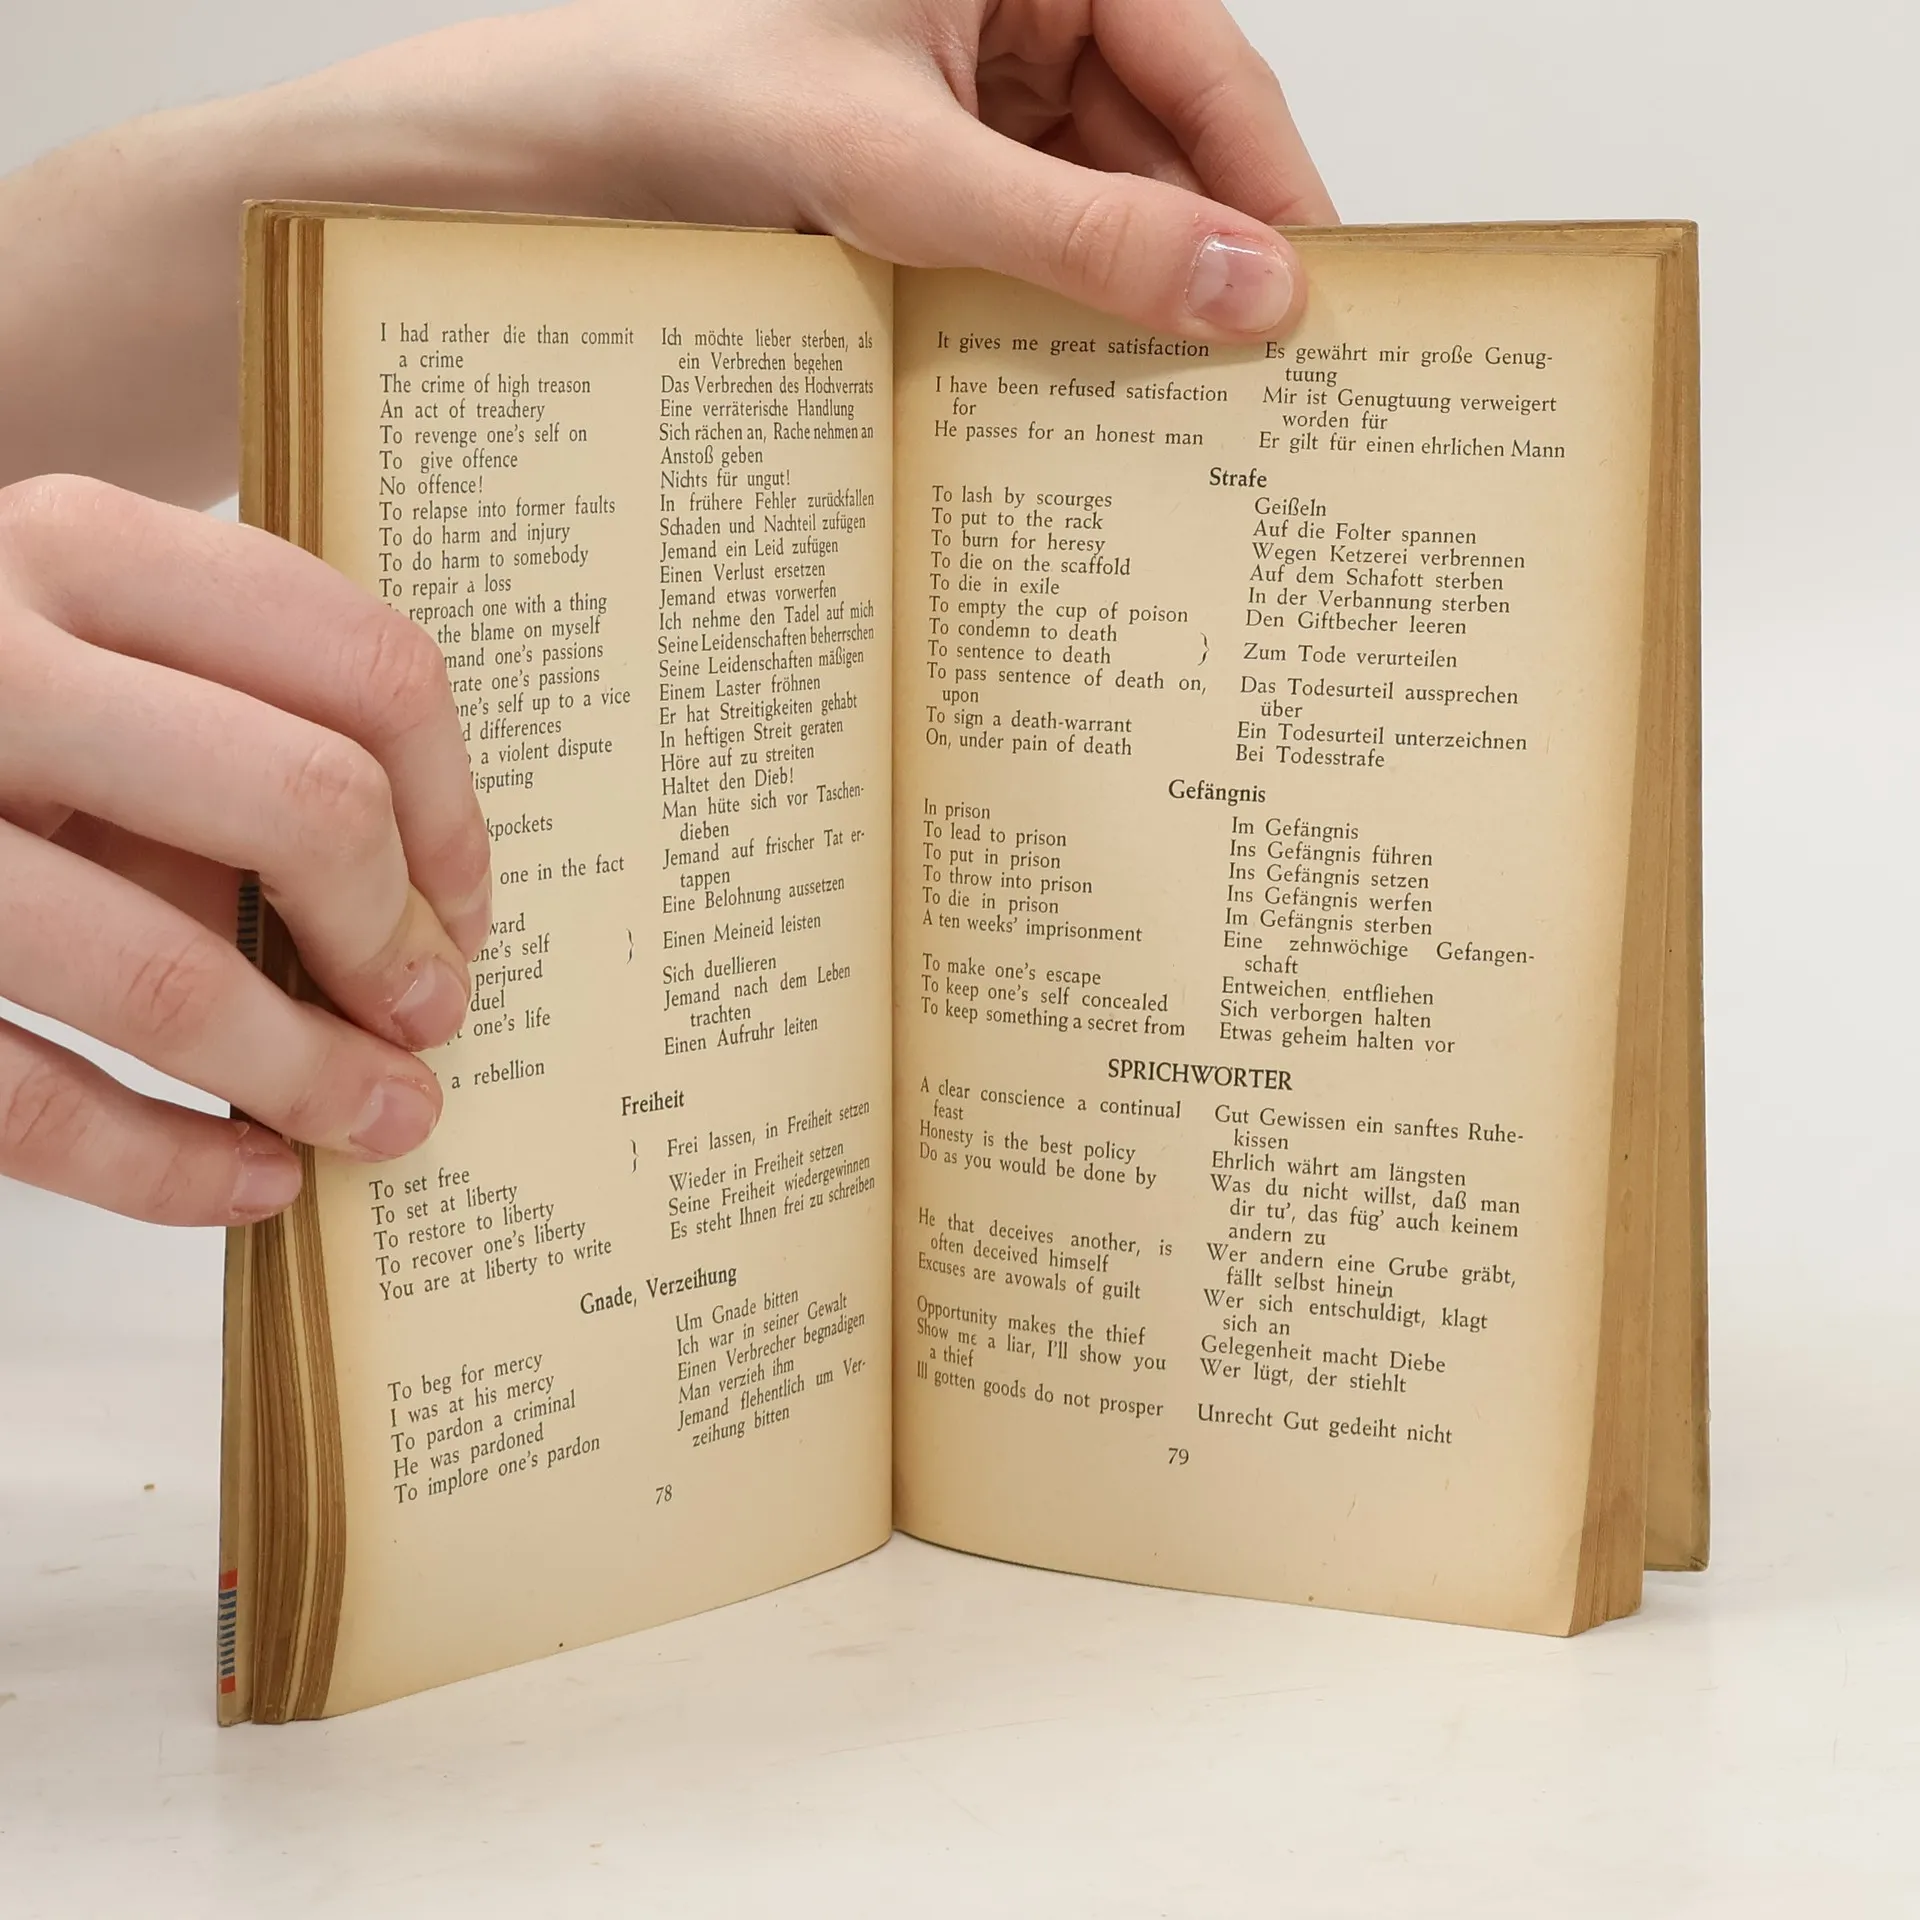 I had rather die than commit
a crime
The crime of high treason
An act of treachery
To revenge one's self on
To give offence
No offence!
To relapse into former faults
To do harm and injury
To do harm to somebody
To repair a loss
reproach one with a thing
the blame on myself
one's passions
one's passions
self up to a vice
differences
a violent dispute
one in the fact
one's self
perjured
duel
one's life
a rebellion
Ich möchte lieber sterben, als
ein Verbrechen begehen
Das Verbrechen des Hochverrats
Eine verräterische Handlung
Sich rächen an, Rache nehmen an
Anstoß geben
Nichts für ungut!
In frühere Fehler zurückfallen
Schaden und Nachteil zufügen
Jemand ein Leid zufügen
Einen Verlust ersetzen
Jemand etwas vorwerfen
Ich nehme den Tadel auf mich
Seine Leidenschaften beherrschen
Seine Leidenschaften mäßigen
Einem Laster fröhnen
Er hat Streitigkeiten gehabt
In heftigen Streit geraten
Höre auf zu streiten
Haltet den Dieb!
Man hüte sich vor Taschen-
dieben
Jemand auf frischer Tat er-
tappen
Eine Belohnung aussetzen
} Einen Meineid leisten
Sich duellieren
Jemand nach dem Leben
trachten
Einen Aufruhr leiten
Freiheit
To set free
To set at liberty
To restore to liberty
To recover one's liberty
You are at liberty to write
} Frei lassen, in Freiheit setzen
Wieder in Freiheit setzen
Seine Freiheit wiedergewinnen
Es steht Ihnen frei zu schreiben
Gnade, Verzeihung
To beg for mercy
I was at his mercy
To pardon a criminal
He was pardoned
To implore one's pardon
Um Gnade bitten
Ich war in seiner Gewalt
Einen Verbrecher begnadigen
Man verzieh ihm
Jemand flehentlich um Ver-
zeihung bitten
78
It gives me great satisfaction
I have been refused satisfaction
for
He passes for an honest man
Es gewährt mir große Genug-
tuung
Mir ist Genugtuung verweigert
worden für
Er gilt für einen ehrlichen Mann
Strafe
To lash by scourges
To put to the rack
To burn for heresy
To die on the scaffold
To die in exile
To empty the cup of poison
To condemn to death
To sentence to death
To pass sentence of death on,
upon
To sign a death-warrant
On, under pain of death
Geißeln
Auf die Folter spannen
Wegen Ketzerei verbrennen
Auf dem Schafott sterben
In der Verbannung sterben
Den Giftbecher leeren
} Zum Tode verurteilen
Das Todesurteil aussprechen
über
Ein Todesurteil unterzeichnen
Bei Todesstrafe
Gefängnis
In prison
To lead to prison
To put in prison
To throw into prison
To die in prison
A ten weeks' imprisonment
To make one's escape
To keep one's self concealed
To keep something a secret from
Im Gefängnis
Ins Gefängnis führen
Ins Gefängnis setzen
Ins Gefängnis werfen
Im Gefängnis sterben
Eine zehnwöchige Gefangen-
schaft
Entweichen, entfliehen
Sich verborgen halten
Etwas geheim halten vor
SPRICHWÖRTER
A clear conscience a continual
feast
Honesty is the best policy
Do as you would be done by
He that deceives another, is
often deceived himself
Excuses are avowals of guilt
Opportunity makes the thief
Show me a liar, I'll show you
a thief
Ill gotten goods do not prosper
Gut Gewissen ein sanftes Ruhe-
kissen
Ehrlich währt am längsten
Was du nicht willst, daß man
dir tu', das füg' auch keinem
andern zu
Wer andern eine Grube gräbt,
fällt selbst hinein
Wer sich entschuldigt, klagt
sich an
Gelegenheit macht Diebe
Wer lügt, der stiehlt
Unrecht Gut gedeiht nicht
79